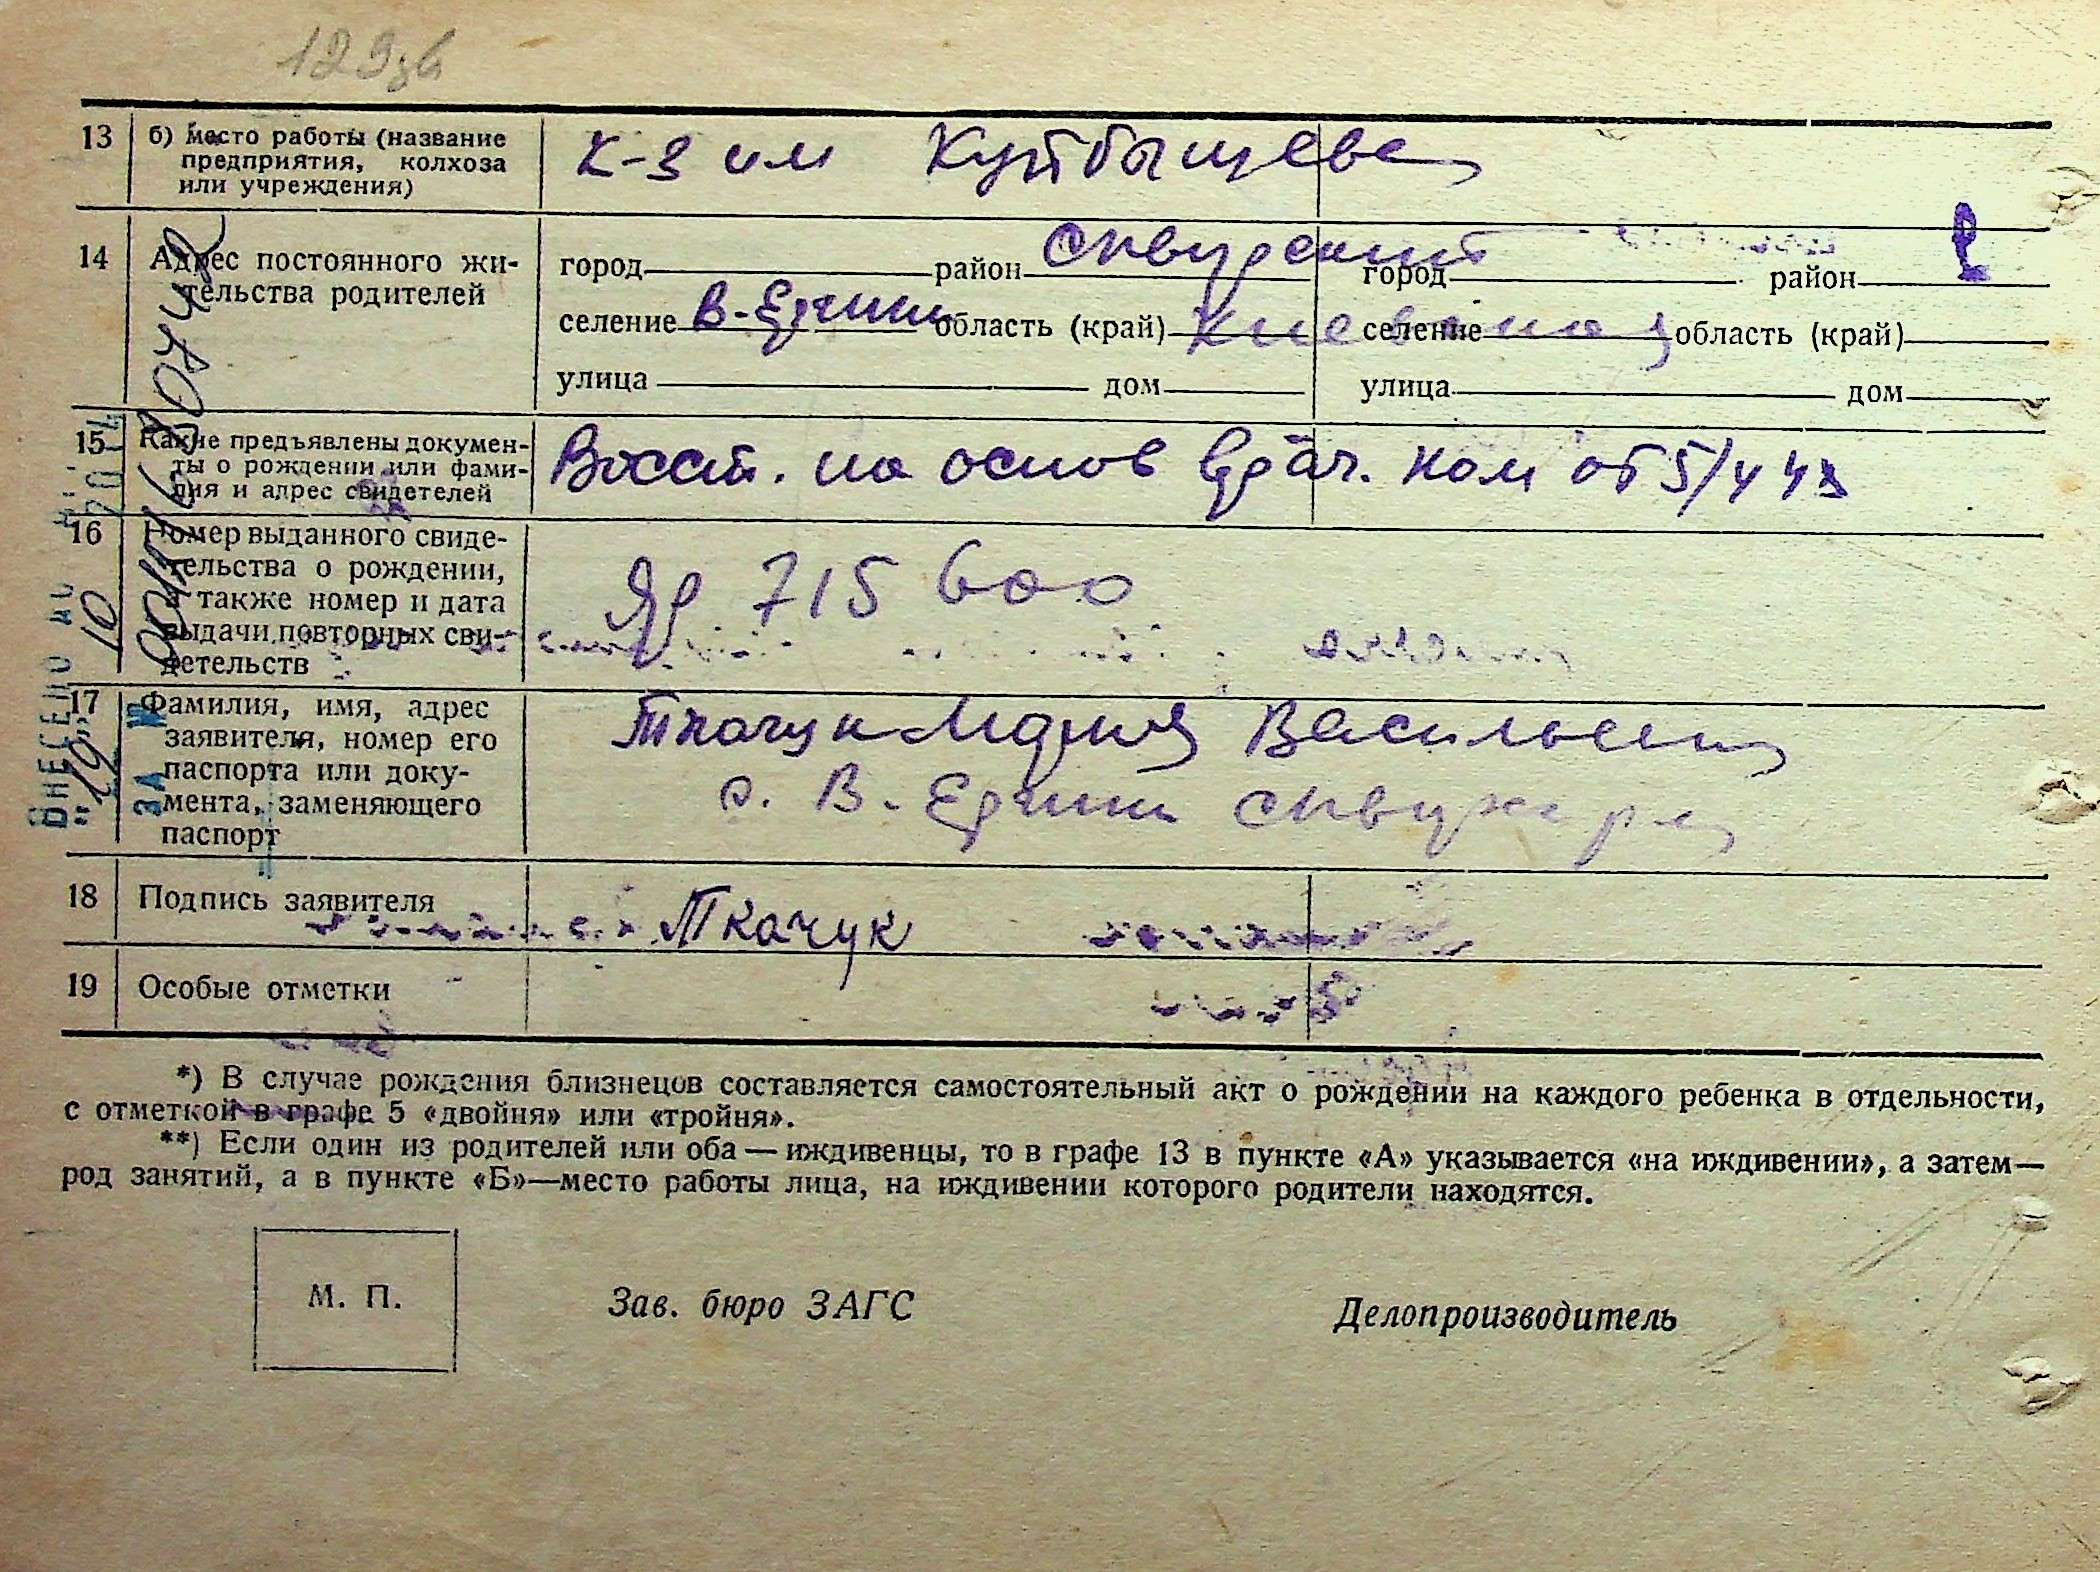 129зв
13 б) Место работы (название предприятия, колхоза или учреждения)
К-з им Куйбышева
14 Адрес постоянного жительства родителей
город район Сквирский город район
селение В-Ерчики область (край) Киевская селение область (край)
улица дом улица дом
15 Какие предъявлены документы о рождении или фамилия и адрес свидетелей
Восст. на основ врач. ком от 5/4 43
16 Номер выданного свидетельства о рождении, а также номер и дата выдачи повторных свидетельств
715600
17 Фамилия, имя, адрес заявителя, номер его паспорта или документа, заменяющего паспорт
Ткачук Мария Васильевна
с. В-Ерчики Сквирск р-на
18 Подпись заявителя
Ткачук
19 Особые отметки
*) В случае рождения близнецов составляется самостоятельный акт о рождении на каждого ребенка в отдельности,
с отметкой в графе 5 «двойня» или «тройня».
**) Если один из родителей или оба — иждивенцы, то в графе 13 в пункте «А» указывается «на иждивении», а затем—
род занятий, а в пункте «Б»—место работы лица, на иждивении которого родители находятся.
М. П.
Зав. бюро ЗАГС
Делопроизводитель
ВНЕСЕНО ДО
ЗА №